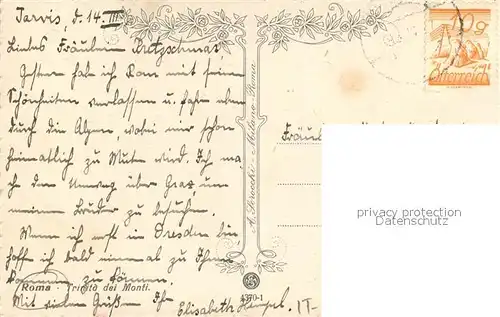 Tarvis, d. 14. III.
Liebes Fräulein Kretzschmar,
Gestern hab ich Rom mit seinen
Schönheiten verlassen u. fahre eben
durch die Alpen, wobei mir schon
heimatlich zu Mute wird. Ich ma-
che den Umweg über Graz, um
meinen Bruder zu besuchen.
Wenn ich erst in Dresden bin
hoffe ich bald einmal zu Ihnen
kommen zu können.
Roma - Trinità dei Monti.
Mit vielen Grüßen Ihre
Elisabeth Hempel.
A. Scrocchi - Milano-Roma
4370-1
10 g
Österreich
Fräul
privacy protection
watermark
IT-